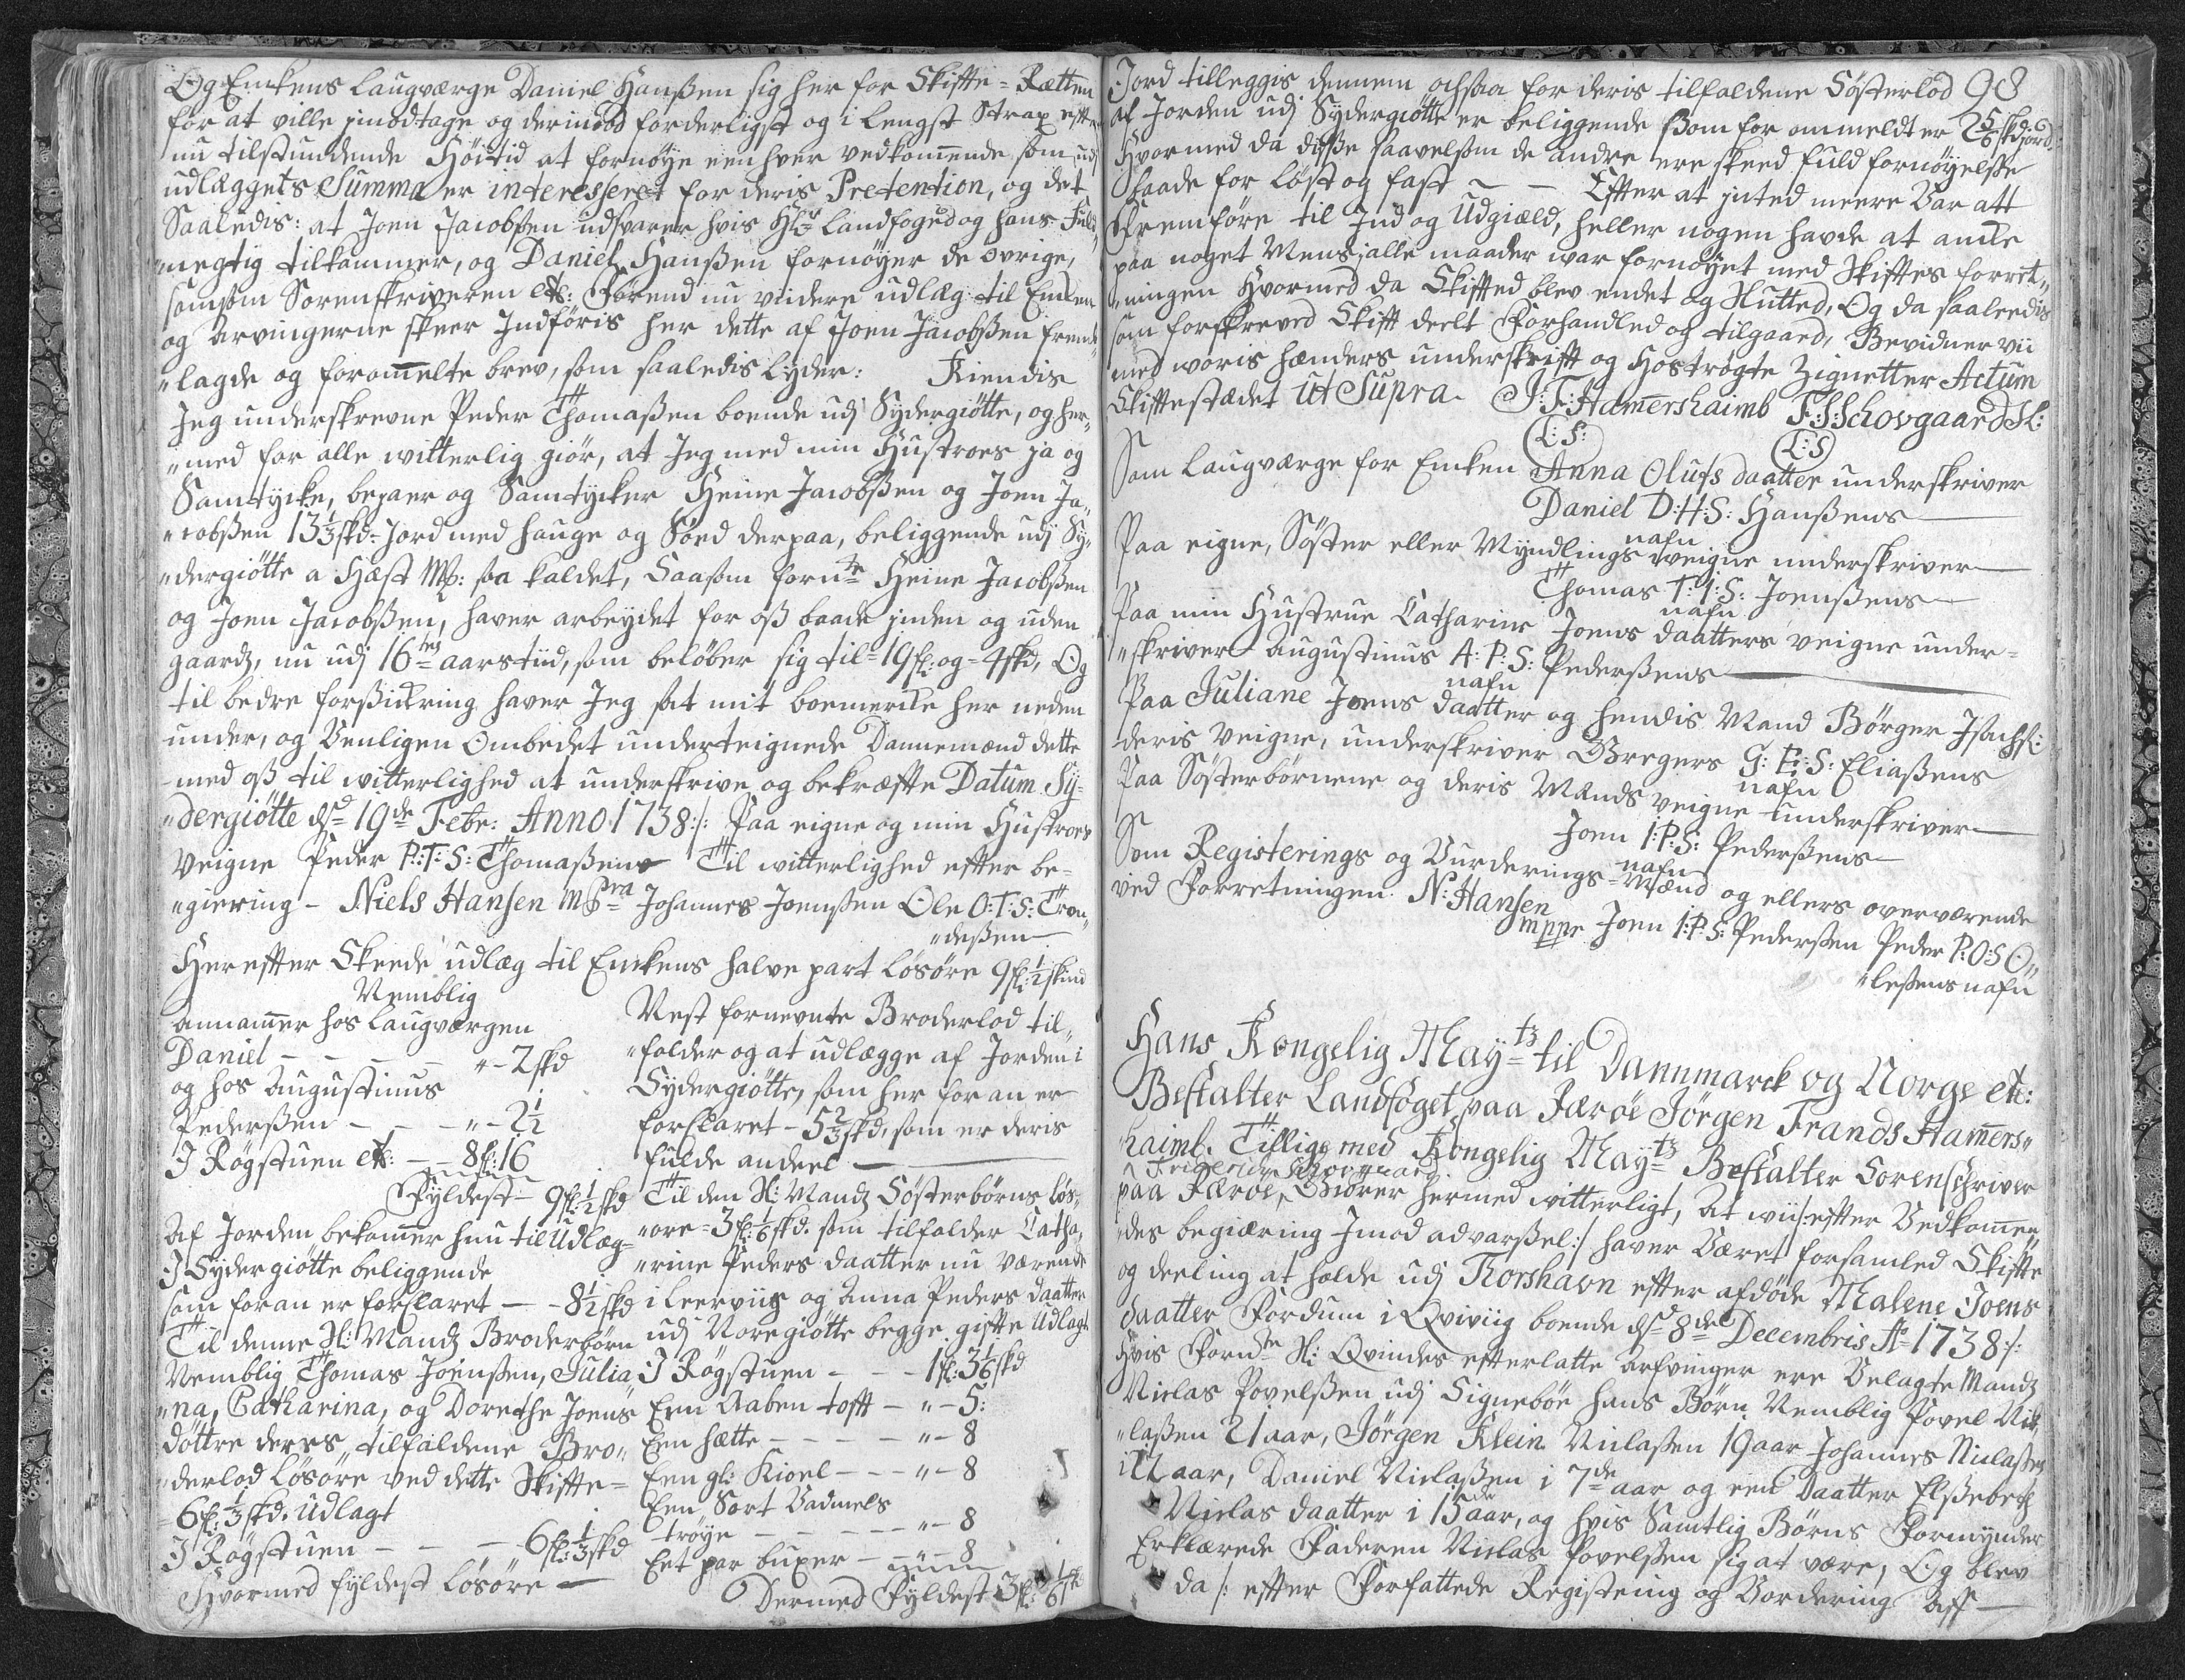 Og Enckens Laugværge Daniel Hanßen sig her for Skifte-Rætten
for at ville jmodtage og derimood forderligst og i lengst Strax efter
nu tilstundende Höitid at fornøye een hver vedkommende som udj
udlæggets Summa er interesseret for deris Pretention, og det
Saaledis: at Joen Jacobßen udsvarer hvis Hr Landfoged og hans Fuld„
„megtig tilkommer, og Daniel Hanßen fornöyer de övrige,
samsom Sorenskriveren etc: Förend nu viidere udlæg til Encken
og Arvingerne skeer Indföris her dette af Joen Jacobßen frem„
„lagde og forommelte brev, som saaledis Lyder: Kiendis
Jeg underskrevne Peder Thomaßen boende udj Sydergiötte, og her„
„med for alle witterlig giör, at Jeg med min Hustroes ja og
Samtÿcke, bejaer og Samtÿcker Heine Jacobßen og Joen Ja„
„cobßen 13 1/3 skd: Jord med hauge og Söed derpaa, beliggende udj Sÿ„
„dergiötte a Hæst Mk: saa kaldet, Saasom fornte Heine Jacobßen
og Joen Jacobßen, haver arbeÿdet for oß baade jnden og uden
gaards, nu udj 16 tes aarstiid, som belöber sig til 19 fl: og 4 skd, Og
til bedre forsickring haver Jeg sat mit boemercke her neden
under, og Venligen Ombedet underteignede Dannemænd dette
med oß til witterlighed at underskrive og bekræfte Datum Sÿ„
„dergiötte dd 19de Febr: Anno 1738:/: Paa eigne og min Hustroes
Veigne Peder P:T:S: Thomaßens Til witterlighed efter be„
„giering – Niels Hansen mpra Johannes Joenßen Ole O:T:S: Tron„
„deßen
Herefter Skeede udlæg til Enckens halve part lösöre 9 fl: 1/2 skind
Nemblig
annammer hos Laugværgen
Daniel – – – – „– 2 skd
og hos Augustinus
Pederßen – – – „– 2 1/2
I Rögstuen etc: – – 8 fl: 16
Fÿldest – 9 fl: 1/2 skd
Af Jorden bekommer hun til Udlæg
I Sÿdergiötte beliggende
som foran er forklaret – – 8 1/2 skd
Til denne Sl: Mands Broderbörn
Nemblig Thomas Joenßen, Julia
„na, Catharina, og Dorethe Joens
döttre deres tilfaldene Bro„
„derlod lösöre ved dette Skifte
6 fl: 1/3 skd. Udlagt
I Rögstuen – – – 6 fl: 1/3 skd
Hvormed fyldest lösöre –
Nest fornevnte Broderlod til„
„falder og at udlægge af Jorden i
Sydergiötte, som her foran er
forklaret – 5 2/3 skd, som er deris
fulde andeel –
Til den Sl: Mands Sösterbörns lös„
„öre – 3 fl: 1/6 skd. som tilfalder Catha„
„rine Peders daatter nu værende
i Leerviig og Anna Peders daatter
udj Noregiötte begge gifte Udlagt
I Rögstuen – – – 1 fl: 3 1/6 skd
Een Aaben tofft – „– 5:
Een hætte – – – – „– 8
Een gl: Kioel – – „– 8
Een Sort Vadmels
tröye – – – – – „– 8
Eet par buxer – – „– 8
Dermed Fÿldest 3 fl: 1/6 sk
98
Jord tilleggis dennem ochsaa for deris tilfaldene Sösterlod
af Jorden udj Sydergiötte er beliggende som for ommeldt er 2 5/6 skd: jord
Hvormed da disse saavelsom de andre ere skeed fuld fornöyelße
baade for löst og fast – – Efter at jnted meere Var att
Fremföre til Ind og Udgiæld, heller nogen havde at ancke
paa noget Mens j alle maader war fornöÿet med Skiftes forret„
„ningen Hvormed da Skifted blev endet og Slutted, Og da saaleedis
som forskreved Skift deelt Forhandled og tilgaaed, Bevidner vii
med woris hænders underskrifft og Hoströgte Zignetter Actum
Skiftestædet ut Supra. J:F: Hammershaimb F:S: Schovgaard SL:
L:S: L:S
Som Laugværge for Encken Anna Olufs daatter underskriver
Daniel D:H:S: Hanßens
nafn
Paa eigne, Söster eller Myndlings weigne underskriver
Thomas T:I:S: Joenßens
nafn
Paa min Hustrue Catharine Joens daatters veigne under„
„skriver Augustinus A:P:S: Pederßens
nafn
Paa Juliane Joens daatter og hendis Mand Börger Isachs:
deris Veigne, underskriver Gregers G:E:S: Eliaßens
nafn
Paa Sösterbörnene og deris Mænds veigne underskriver
Joen I:P:S: Pederßens
nafn
Som Registerings og Vurderings-Mænd og ellers overværende
ved Forretningen. N: Hansen
mppr Joen I:P:S: Pederßen Peder P:O:S O„
„leßens nafn
Hans Kongelig Mayts til Dannmarck og Norge etc:
Bestalter Landfoget paa Færöe Jörgen Frands Hammers„
haimb. Tillige med Kongelig Mayts Bestalter Sorenschriver
Friderich Schovgaard
paa Færöe, Giörer hermed witterligt, At wii /:efter Vedkommen„
„des begiæring Imod advarßel:/ haver Været forsamled Skifte
og deeling at holde udj Thorshavn efter afdöde Malene Joens
daatter Fordum i Qviviig boende dd 8de Decembris Ao 1738:/:
Hvis Fornte Sl: Qvindes efterlatte arfvinger ere Velagte Mand
Niclas Povelßen udj Signeböe hans Börn Nemblig Povel Nic„
„laßen 21 aar, Jörgen Klein Niclaßen 19 aar Johannes Niclaßen
i 12 aar, Daniel Niclaßen i 7de aar og een Daatter Elßebeth
Niclas daatter i 15de aar, og hvis Samtlig Börns Formÿnder
Erklærede Faderen Niclas Povelßen sig at være, Og blev
da /: efter Forfattede Registering og Vordering aff –